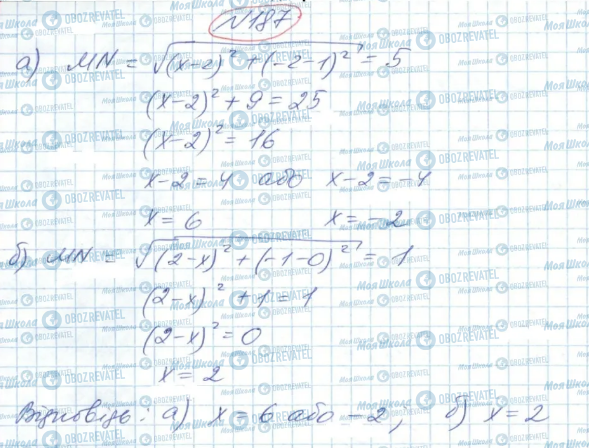 №187
а) MN = √(x-2)² + (-2-1)² = 5
(x-2)² + 9 = 25
(x-2)² = 16
x-2 = 4 або x-2 = -4
x = 6 x = -2
б) MN = √(2-x)² + (-1-0)² = 1
(2-x)² + 1 = 1
(2-x)² = 0
x = 2
Відповідь: а) x = 6 або -2, б) x = 2
Моя Школа OBOZREVATEL